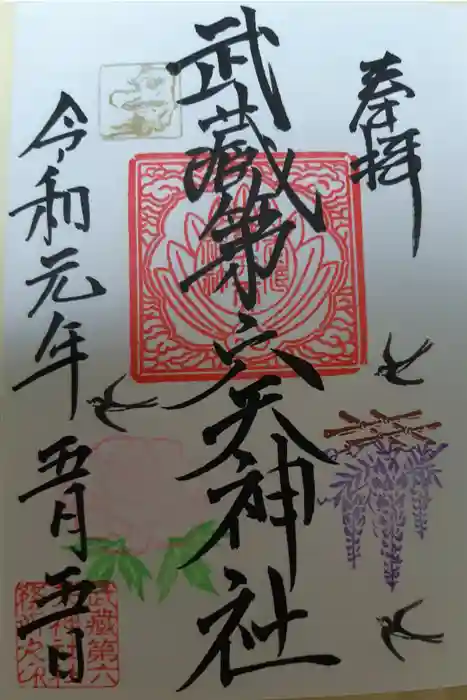 奉拝
武蔵第六天神社
令和元年五月五日
武蔵第六